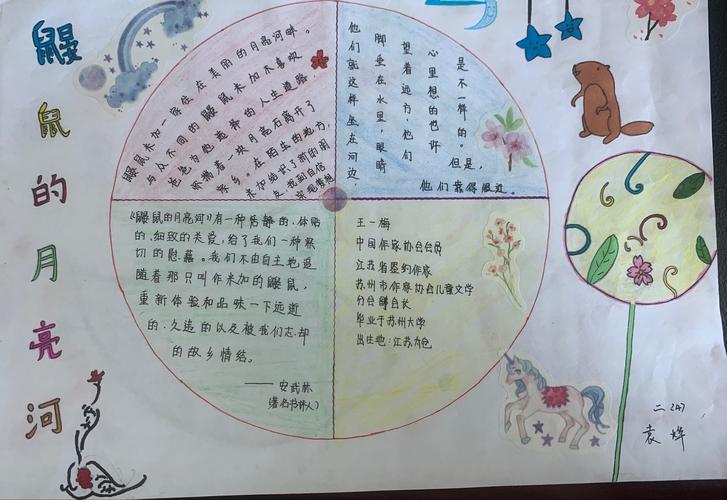 鼹鼠的月亮河
鼹鼠米加一家住在美丽的月亮河畔。
与众不同的鼹鼠米加不喜欢
爸爸为他选择的人生道路,
怀揣着一块月亮石离开了
家乡。在陌生的地方,
米加结识了新的朋
友,找到自信
他们就这样坐在河边,
脚垂在水里,眼睛
望着远方,他们
心里想的也许
是不一样的。
但是,
他们靠得很近。
《鼹鼠的月亮河》有一种恬静的、体贴
的、细致的关爱,给了我们一种
切的慰藉。我们不由自主地追
随着那只叫作米加的鼹鼠,
重新体验和品味一下远逝
的、久违的以及被我们忘却
的故乡情结。
——安武林
(著名书评人)
王一梅
中国作家协会会员
江苏省签约作家
苏州市作家协会儿童文学
分会副会长
毕业于苏州大学
出生地:江苏太仓
二(4)
袁烨